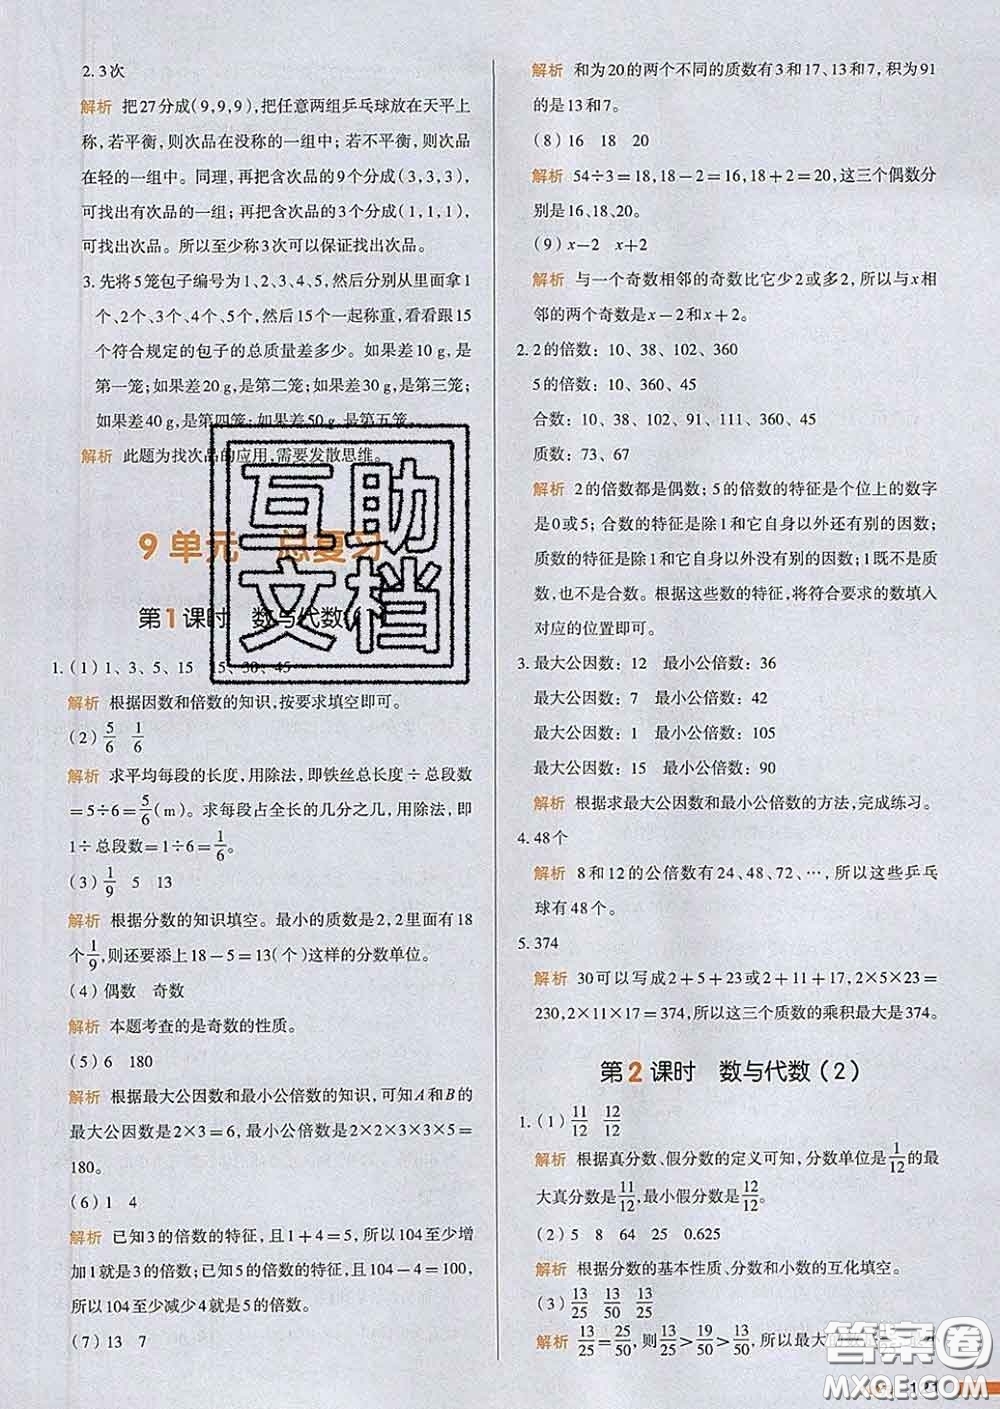 2. 3次
解析 把27分成(9,9,9),把任意两组乒乓球放在天平上
称,若平衡,则次品在没称的一组中;若不平衡,则次品
在轻的一组中。同理,再把含次品的9个分成(3,3,3),
可找出有次品的一组;再把含次品的3个分成(1,1,1),
可找出次品。所以至少称3次可以保证找出次品。
3. 先将5笼包子编号为1、2、3、4、5,然后分别从里面拿1
个、2个、3个、4个、5个,然后15个一起称重,看看跟15
个符合规定的包子的总质量差多少。如果差10 g,是
第一笼;如果差20 g,是第二笼;如果差30 g,是第三笼;
如果差40 g,是第四笼;如果差50 g,是第五笼。
解析 此题为找次品的应用,需要发散思维。
9 单元 总复习
第1课时 数与代数(1)
1. (1) 1、3、5、15 15、30、45
解析 根据因数和倍数的知识,按要求填空即可。
(2) 5/6 1/6
解析 求平均每段的长度,用除法,即铁丝总长度÷总段数
=5÷6=5/6(m)。求每段占全长的几分之几,用除法,即
1÷总段数=1÷6=1/6。
(3) 1/9 5 13
解析 根据分数的知识填空。最小的质数是2,2里面有18
个1/9,则还要添上18-5=13(个)这样的分数单位。
(4) 偶数 奇数
解析 本题考查的是奇数的性质。
(5) 6 180
解析 根据最大公因数和最小公倍数的知识,可知A和B的
最大公因数是2×3=6,最小公倍数是2×2×3×3×5=
180。
(6) 1 4
解析 已知3的倍数的特征,且1+4=5,所以104至少增
加1就是3的倍数;已知5的倍数的特征,且104-4=100,
所以104至少减少4就是5的倍数。
(7) 13 7
解析 和为20的两个不同的质数有3和17、13和7,积为91
的是13和7。
(8) 16 18 20
解析 54÷3=18,18-2=16,18+2=20,这三个偶数分
别是16、18、20。
(9) x-2 x+2
解析 与一个奇数相邻的奇数比它少2或多2,所以与x相
邻的两个奇数是x-2和x+2。
2. 2的倍数: 10、38、102、360
5的倍数: 10、360、45
合数: 10、38、102、91、111、360、45
质数: 73、67
解析 2的倍数都是偶数;5的倍数的特征是个位上的数字
是0或5;合数的特征是除1和它自身以外还有别的因数;
质数的特征是除1和它自身以外没有别的因数;1既不是质
数,也不是合数。根据这些数的特征,将符合要求的数填入
对应的位置即可。
3. 最大公因数: 12 最小公倍数: 36
最大公因数: 7 最小公倍数: 42
最大公因数: 1 最小公倍数: 105
最大公因数: 15 最小公倍数: 90
解析 根据求最大公因数和最小公倍数的方法,完成练习。
4. 48个
解析 8和12的公倍数有24、48、72、…,所以这些乒乓
球有48个。
5. 374
解析 30可以写成2+5+23或2+11+17,2×5×23=
230,2×11×17=374,所以这三个质数的乘积最大是374。
第2课时 数与代数(2)
1. (1) 11/12 12/12
解析 根据真分数、假分数的定义可知,分数单位是1/12的最
大真分数是11/12,最小假分数是12/12。
(2) 5 8 64 25 0.625
解析 根据分数的基本性质、分数和小数的互化填空。
(3) 13/25 13/50
解析 13/25=25/50,则13/25>19/50>13/50,所以最大
互助
文档
答案圈
MXQE.COM
121